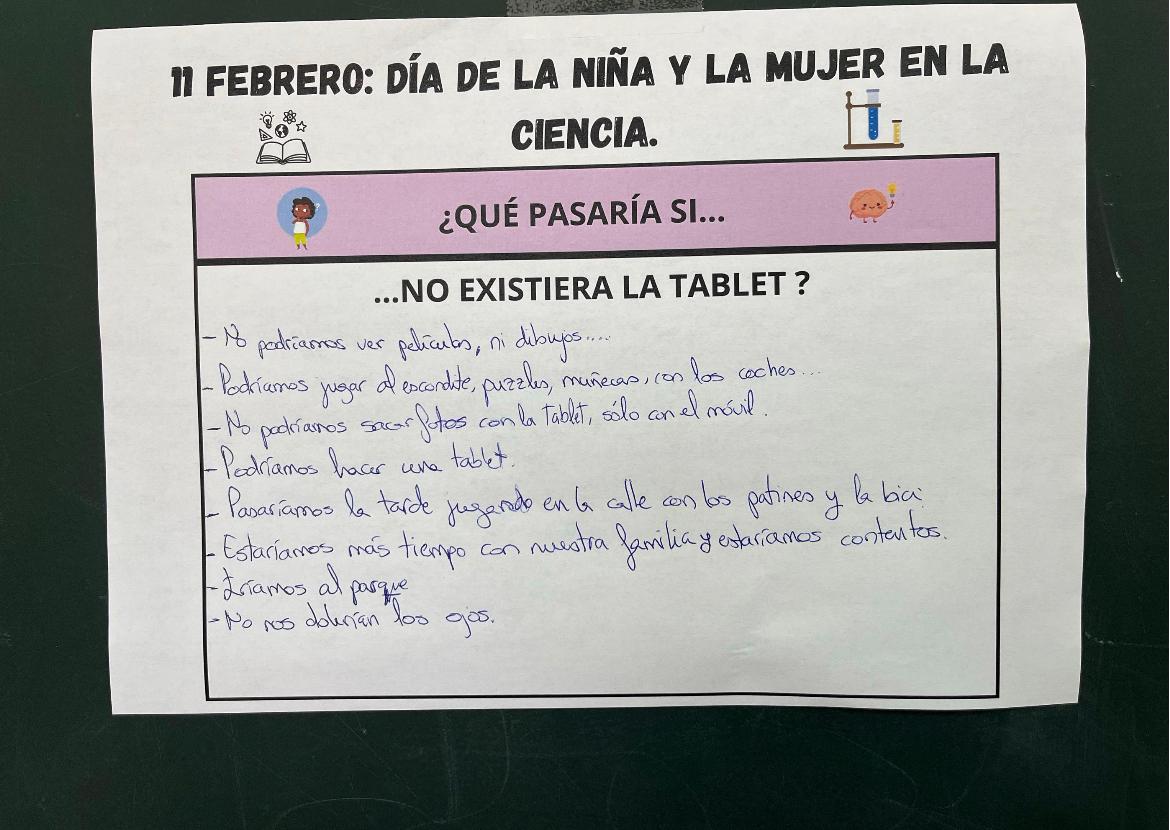 11 FEBRERO: DÍA DE LA NIÑA Y LA MUJER EN LA
CIENCIA.
¿QUÉ PASARÍA SI...
...NO EXISTIERA LA TABLET ?
- No podríamos ver películas, ni dibujos....
- Podríamos jugar al escondite, puzzles, muñecas, con los coches...
- No podríamos sacar fotos con la tablet, sólo con el móvil.
- Podríamos hacer una tablet.
- Pasaríamos la tarde jugando en la calle con los patines y la bici.
- Estaríamos más tiempo con nuestra familia y estaríamos contentos.
- Iríamos al parque
- No nos dolerían los ojos.